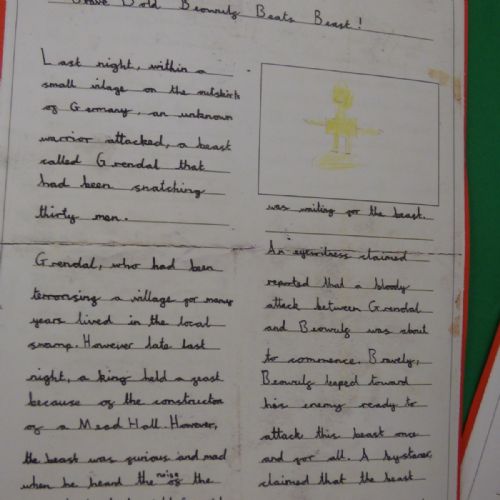 Brave Bold Beowulf Beats Beast!
Last night, within a
small vilage on the outskirts
of Germany, an unknown
warrior attacked, a beast
called Grendal that
had been snatching
thirty men.
Grendal, who had been
terrorising a village for many
years lived in the local
swamp. However late last
night, a king held a feast
because of the construction
of a Mead Hall. However,
the beast was furious and mad
when he heard the noise of the
was waiting for the beast.
An eyewitness claimed
reported that a bloody
attack between Grendal
and Beowulf was about
to commence. Bravely,
Beowulf leeped toward
his enemy ready to
attack this beast once
and for all. A bystaner,
claimed that the beast